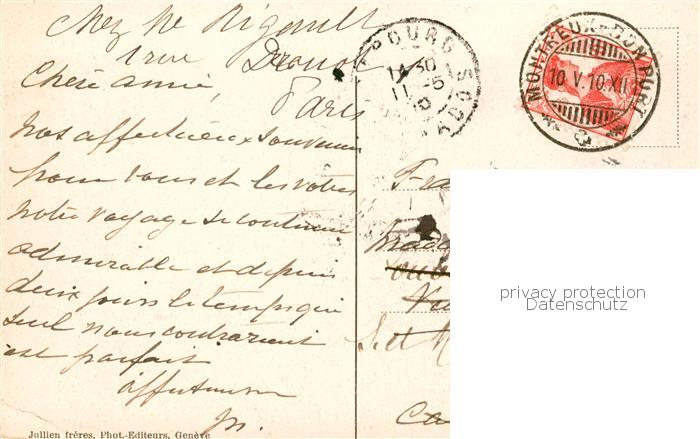 chez Me Rigault
1 rue Drouot
Chère amie, Paris
nos affectueux souvenirs
pour vous et les vôtres
notre voyage se continue
admirable et depuis
deux jours le temps qui
seul nous contrariait
est parfait
affectueusement
Jullien fréres, Phot.-Editeurs, Genève
BOURG
14 30
11 -5
10
ADOS
MONTREUX-BON PORT
10.V.10.XII
Fra
Mada
S. et M
Ca
privacy protection
Datenschutz